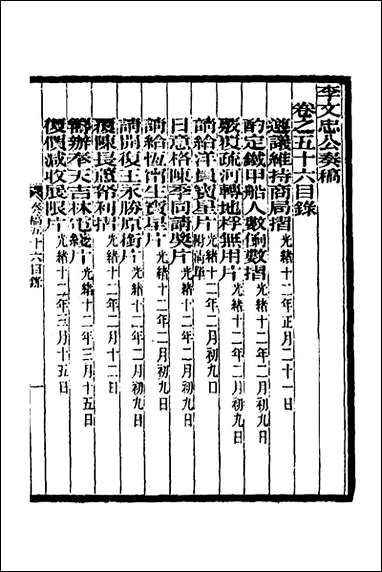 李文忠公奏稿
卷之五十六目錄
遵議維持商局摺光緒十二年正月二十一日
酌定鐵甲船人數餉數摺光緒十二年二月初九日
駁疏河轉地桴無用片光緒十二年二月初九日
請給洋員寶星片附清單光緒十二年二月初九日
日意格陳季同請獎片光緒十二年二月初九日
請給恆甯生寶星片光緒十二年二月初九日
請開復王永勝原銜片光緒十二年二月初九日
覆陳長蘆鹺利摺光緒十二年二月十二日
籌辦奉天吉林電綫片光緒十二年三月十五日
復價減收展限片光緒十二年三月十五日
奏稿五十六目錄
一